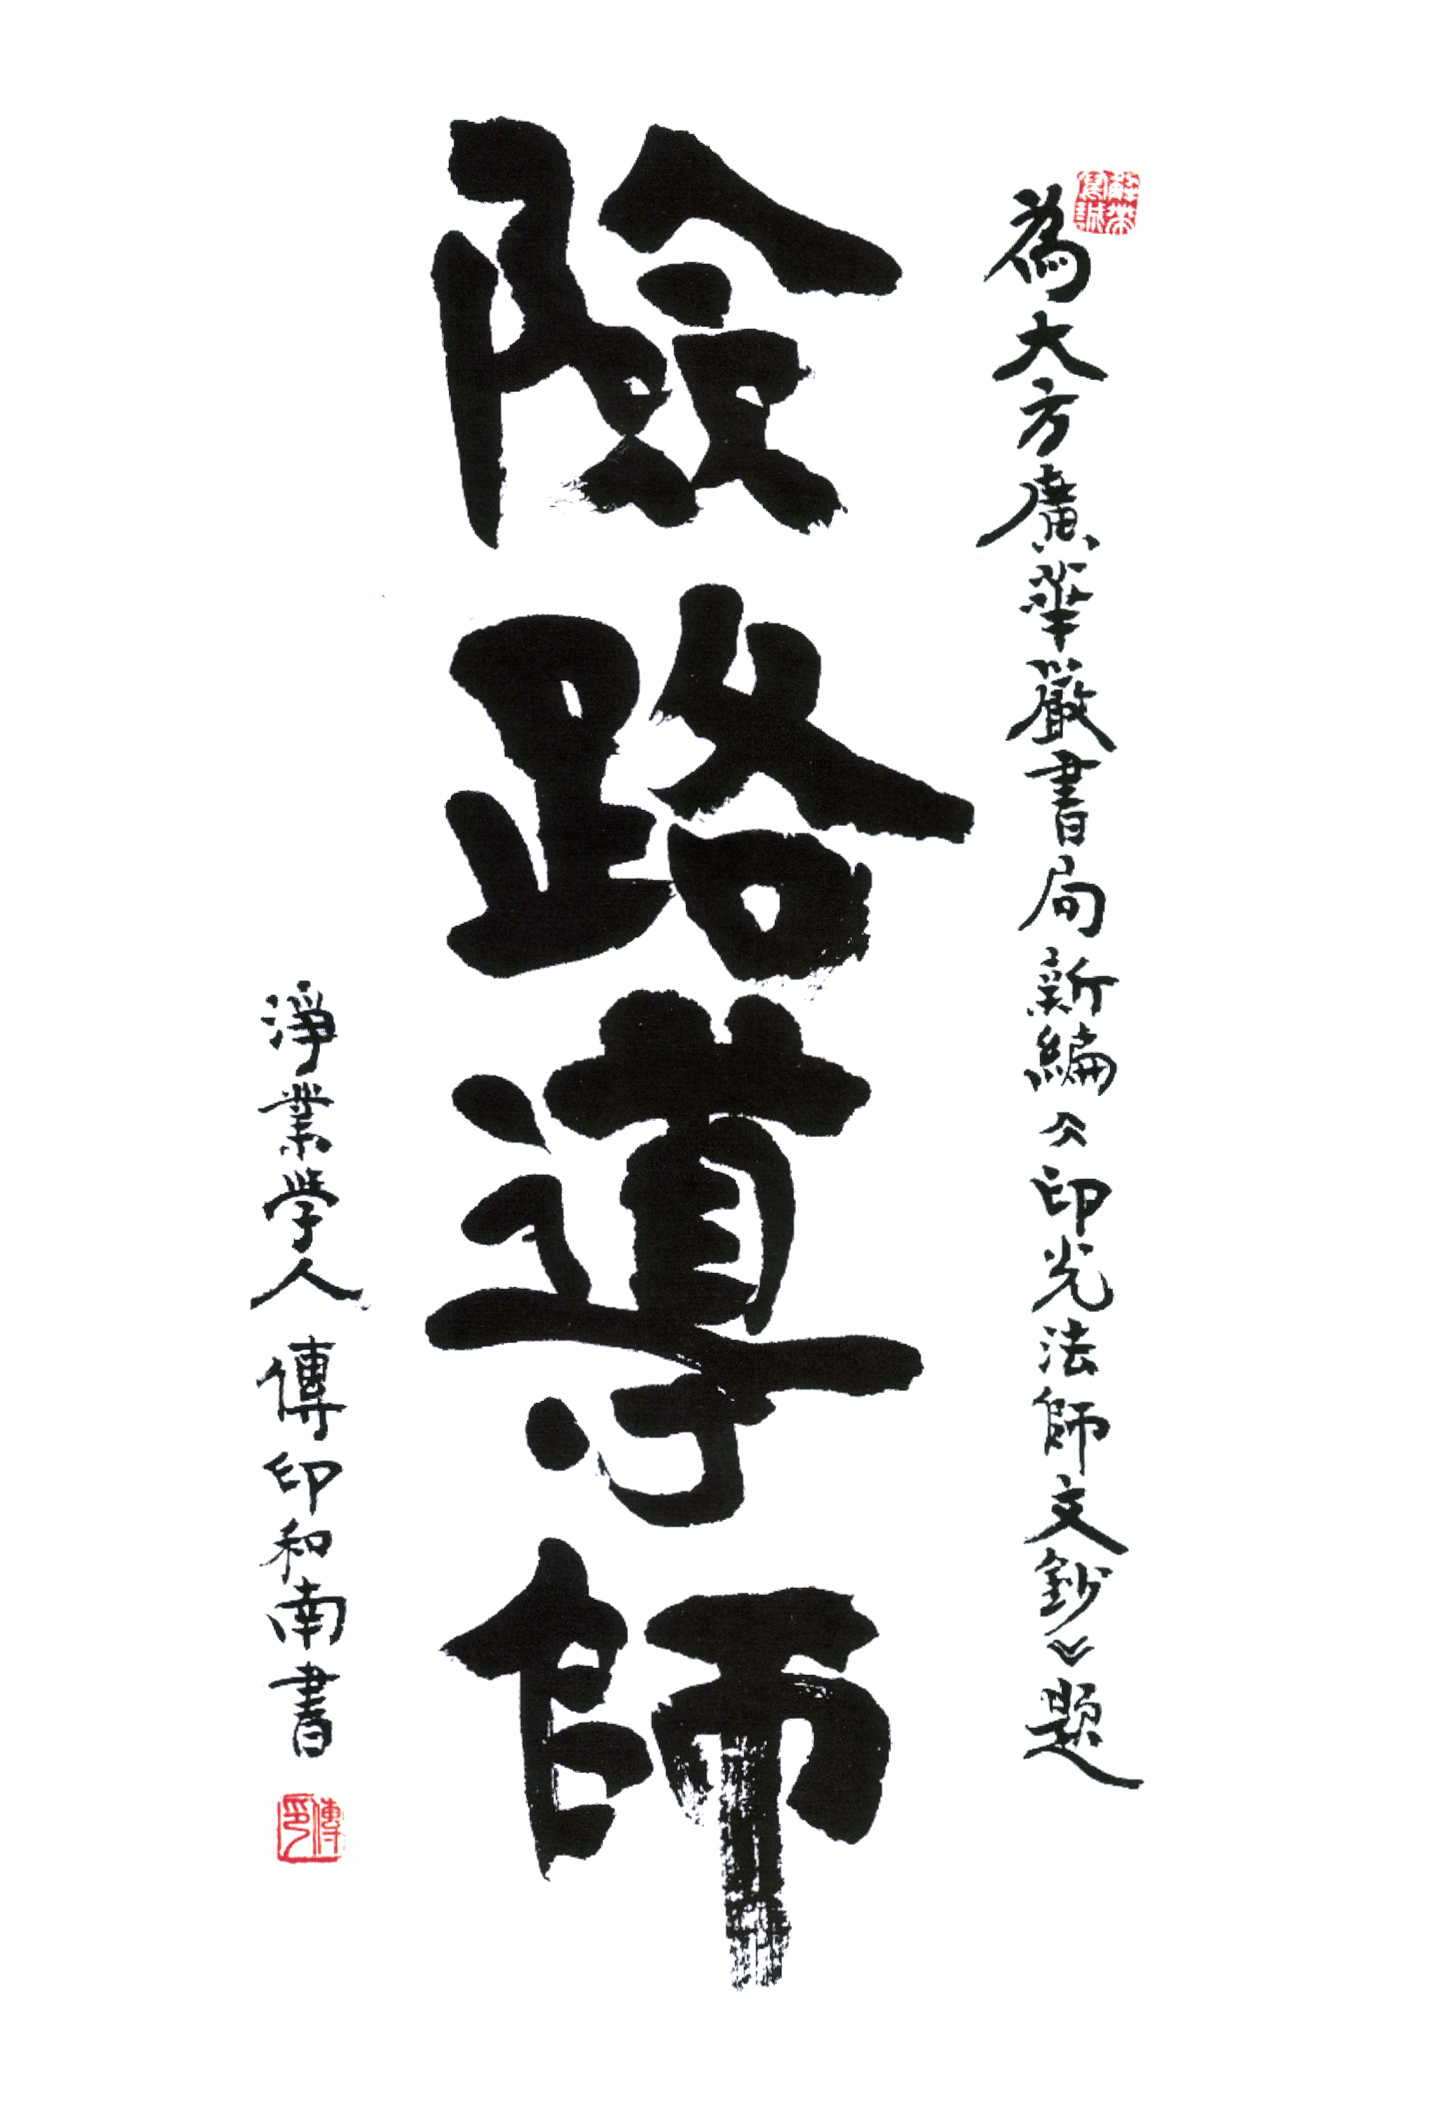 為大方廣華嚴書局新編《印光法師文鈔》題
險路導師
淨業学人 傳印和南書
傳印